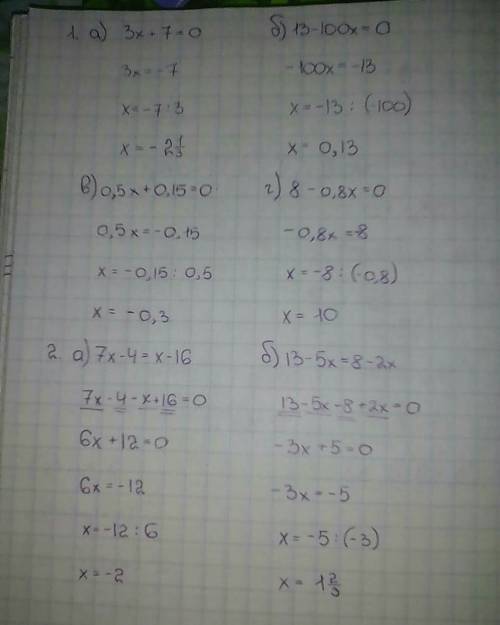 1. а) 3x + 7 = 0
3x = -7
x = -7 : 3
x = - 2 1/3
б) 13 - 100x = 0
-100x = -13
x = -13 : (-100)
x = 0,13
в) 0,5x + 0,15 = 0
0,5x = -0,15
x = -0,15 : 0,5
x = -0,3
г) 8 - 0,8x = 0
-0,8x = -8
x = -8 : (-0,8)
x = 10
2. а) 7x - 4 = x - 16
7x - 4 - x + 16 = 0
6x + 12 = 0
6x = -12
x = -12 : 6
x = -2
б) 13 - 5x = 8 - 2x
13 - 5x - 8 + 2x = 0
-3x + 5 = 0
-3x = -5
x = -5 : (-3)
x = 1 2/3